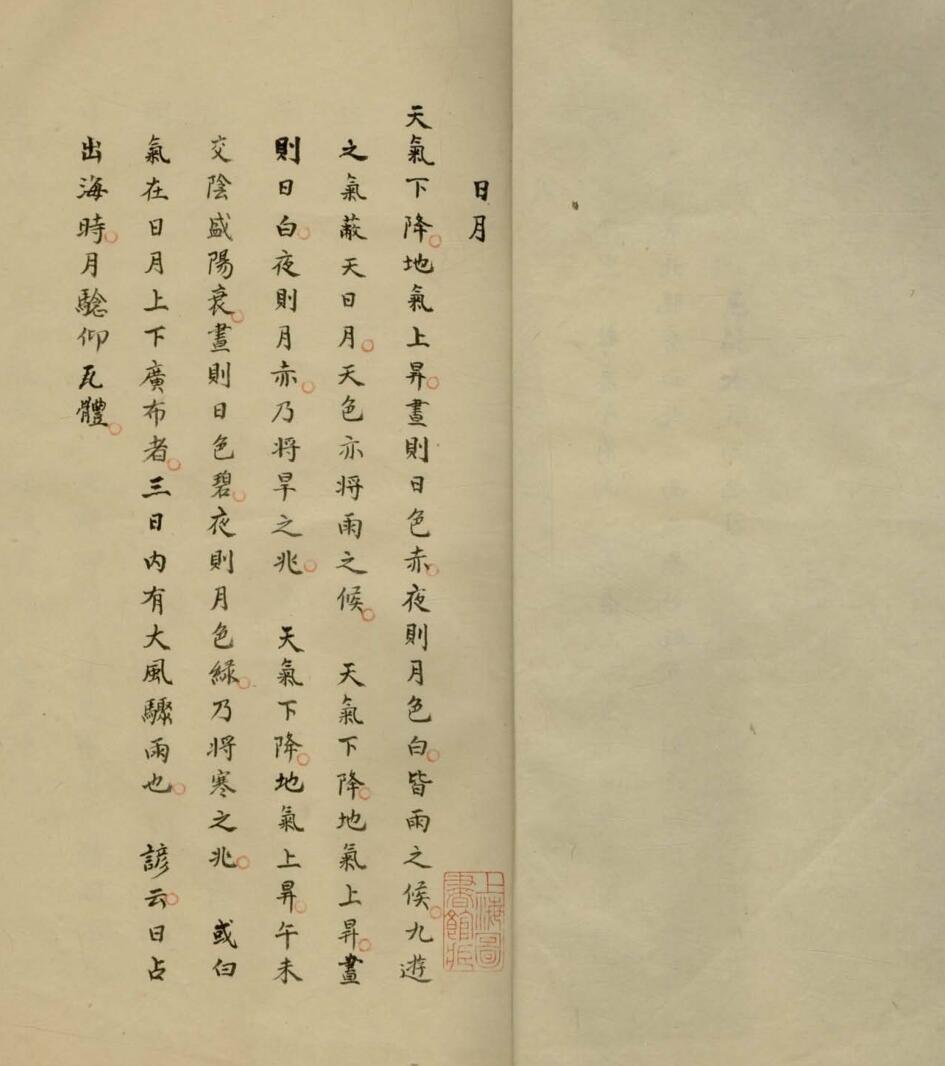 日月
天氣下降地氣上昇晝則日色赤夜則月色白皆雨之候九遊
之氣蔽天日月天色亦將雨之候　天氣下降地氣上昇晝
則日白夜則月赤乃將旱之兆　天氣下降地氣上昇午未
交陰盛陽衰晝則日色碧夜則月色綠乃將寒之兆　或白
氣在日月上下廣布者三日內有大風驟雨也　諺云日占
出海時月驗仰瓦體
上海圖
書館藏